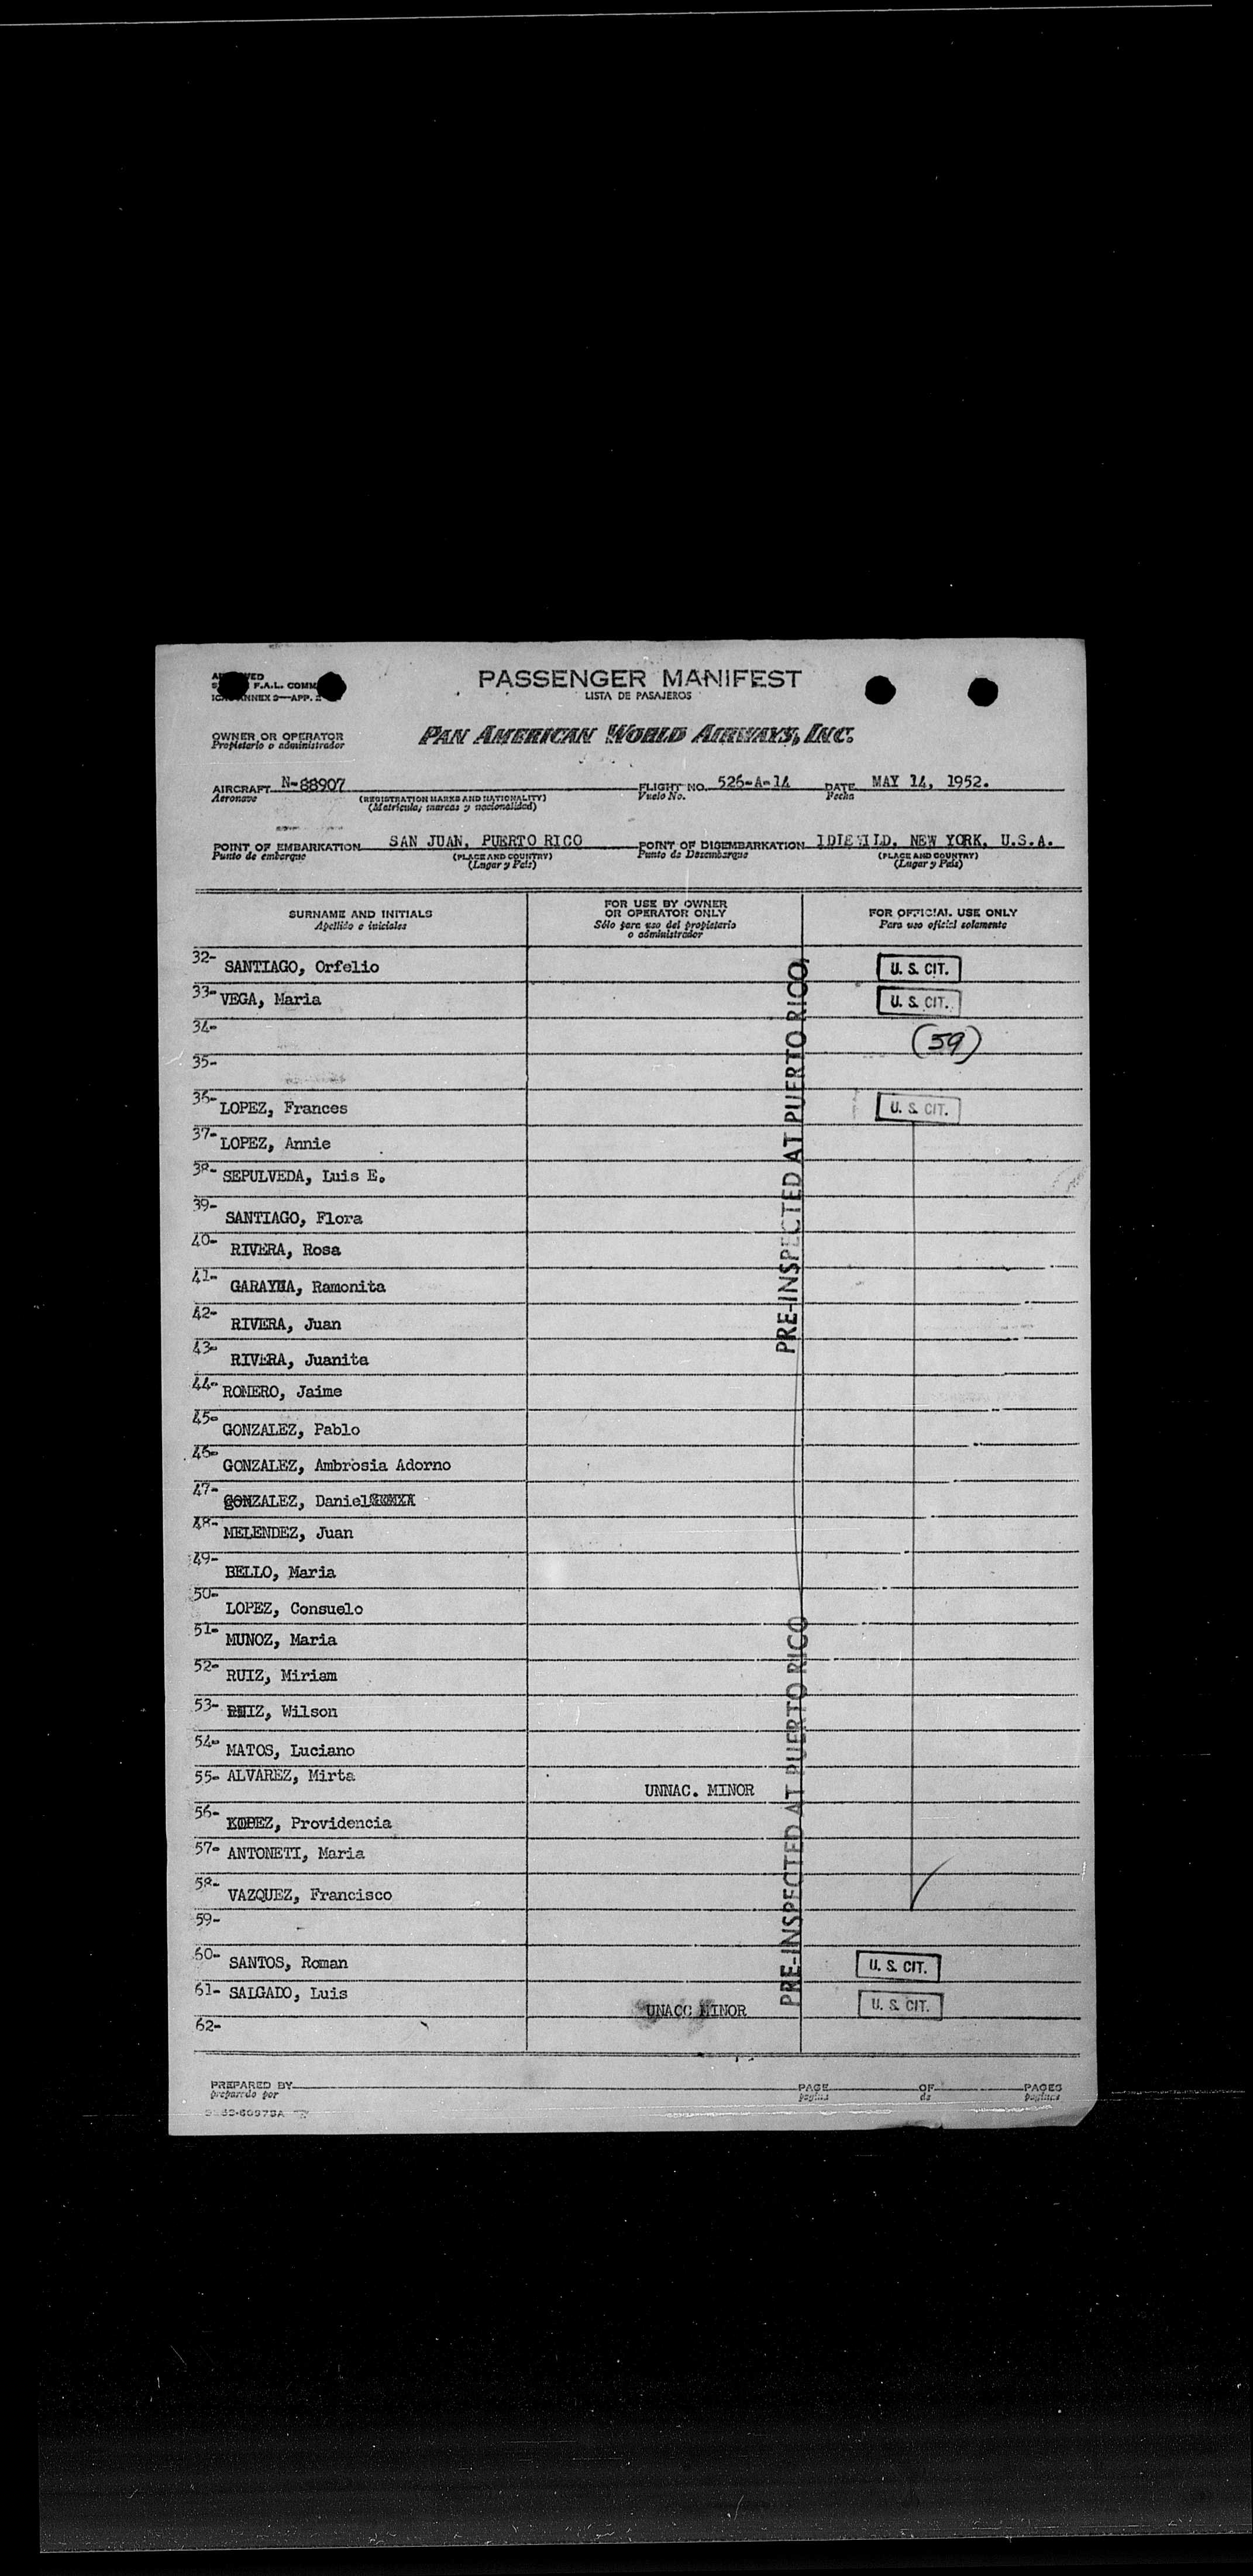 PASSENGER MANIFEST
LISTA DE PASAJEROS
F.A.L. COMM
ANNEX 9—APP.
OWNER OR OPERATOR
Propietario o administrador
PAN AMERICAN WORLD AIRWAYS, INC.
AIRCRAFT N-88907 FLIGHT NO. 526-A-14 DATE MAY 14, 1952.
Aeronave (REGISTRATION MARKS AND NATIONALITY) Vuelo No. Fecha
(Matrícula, marcas y nacionalidad)
POINT OF EMBARKATION SAN JUAN, PUERTO RICO POINT OF DISEMBARKATION IDLEWILD, NEW YORK, U.S.A.
Punto de embarque (PLACE AND COUNTRY) Punto de Desembarque (PLACE AND COUNTRY)
(Lugar y País) (Lugar y País)
SURNAME AND INITIALS
Apellido e iniciales
FOR USE BY OWNER
OR OPERATOR ONLY
Sólo para uso del propietario
o administrador
FOR OFFICIAL USE ONLY
Para uso oficial solamente
32- SANTIAGO, Orfelio U. S. CIT.
33- VEGA, Maria U. S. CIT.
34- (59)
35-
36- LOPEZ, Frances U. S. CIT.
37- LOPEZ, Annie
38- SEPULVEDA, Luis E.
39- SANTIAGO, Flora
40- RIVERA, Rosa
41- Ramonita
42- RIVERA, Juan
43- RIVERA, Juanita
44- ROMERO, Jaime
45- GONZALEZ, Pablo
46- GONZALEZ, Ambrosia Adorno
47- GONZALEZ, Daniel
48- MELENDEZ, Juan
49- BELLO, Maria
50- LOPEZ, Consuelo
51- MUNOZ, Maria
52- RUIZ, Miriam
53- RUIZ, Wilson
54- MATOS, Luciano
55- ALVAREZ, Mirta UNNAC. MINOR
56- Providencia
57- ANTONETI, Maria
58- VAZQUEZ, Francisco
59-
60- SANTOS, Roman U. S. CIT.
61- SALGADO, Luis UNACC MINOR U. S. CIT.
62-
PRE-INSPECTED AT PUERTO RICO
PRE-INSPECTED AT PUERTO RICO
PREPARED BY PAGE OF PAGES
preparado por pagina de paginas